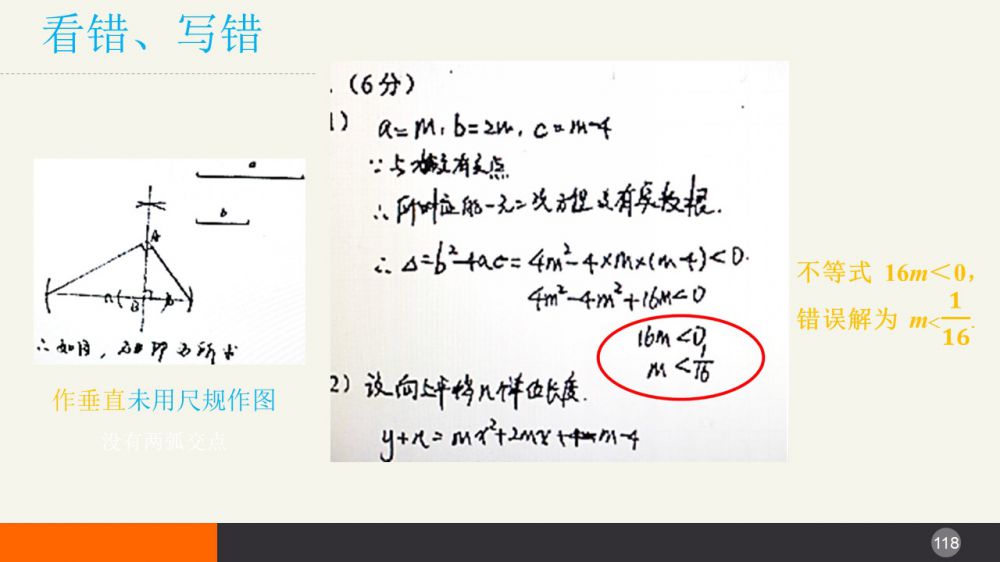 看错、写错
a
b
A
n
B
∴如图，为所求
作垂直未用尺规作图
没有两弧交点
.（6分）
1） a=m, b=2m, c=m-4
∵与x轴没有交点
∴所对应的一元二次方程没有实数根.
∴Δ=b²-4ac=4m²-4×m×(m-4)<0.
4m²-4m²+16m<0
16m<0,
m<1/16
2）设向上平移n个单位长度.
y+n=mx²+2mx+m-4
不等式 16m＜0，
错误解为 m<1/16.
118